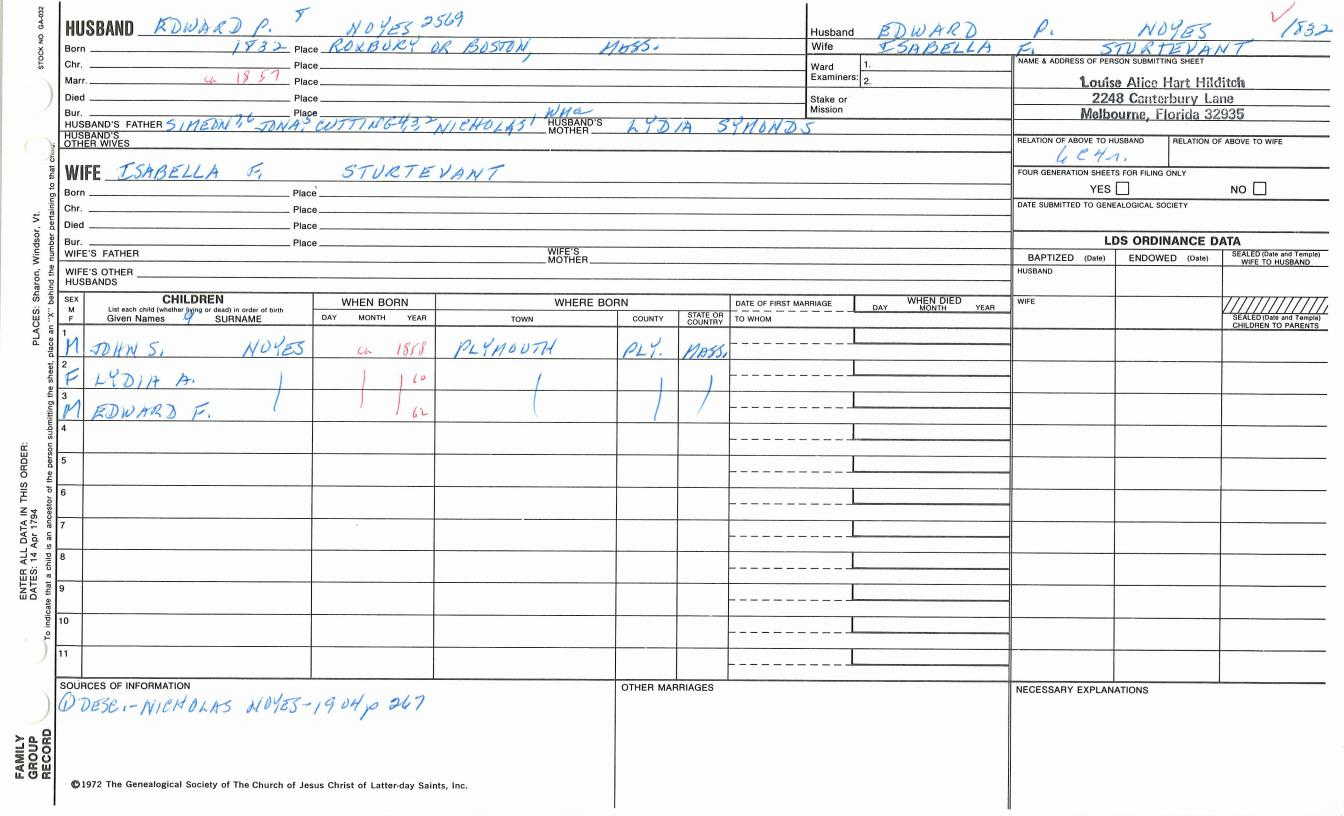 STOCK NO. GA-032
HUSBAND EDWARD P. 8 NOYES 2569
Born 1832 Place ROXBURY OR BOSTON, MASS.
Chr. Place
Marr. ca 1857 Place
Died Place
Bur. Place
HUSBAND'S FATHER SIMEON, JONA, CUTTING, NICHOLAS1 HUSBAND'S MOTHER LYDIA SYMONDS
HUSBAND'S OTHER WIVES
WIFE ISABELLA F. STURTEVANT
Born Place
Chr. Place
Died Place
Bur. Place
WIFE'S FATHER WIFE'S MOTHER
WIFE'S OTHER HUSBANDS
Husband EDWARD P. NOYES 1832
Wife ISABELLA F. STURTEVANT
Ward Examiners: 1.
2.
Stake or Mission
NAME & ADDRESS OF PERSON SUBMITTING SHEET
Louise Alice Hart Hilditch
2248 Canterbury Lane
Melbourne, Florida 32935
RELATION OF ABOVE TO HUSBAND RELATION OF ABOVE TO WIFE
6C4r.
FOUR GENERATION SHEETS FOR FILING ONLY
YES NO
DATE SUBMITTED TO GENEALOGICAL SOCIETY
LDS ORDINANCE DATA
BAPTIZED (Date) ENDOWED (Date) SEALED (Date and Temple) WIFE TO HUSBAND
HUSBAND
WIFE
SEALED (Date and Temple) CHILDREN TO PARENTS
SEX M F
CHILDREN
List each child (whether living or dead) in order of birth
Given Names 9 SURNAME
WHEN BORN
DAY MONTH YEAR
WHERE BORN
TOWN COUNTY STATE OR COUNTRY
DATE OF FIRST MARRIAGE
TO WHOM
WHEN DIED
DAY MONTH YEAR
1 M JOHN S. NOYES ca 1858 PLYMOUTH PLY. MASS.
2 F LYDIA A. 60
3 M EDWARD F. 62
4
5
6
7
8
9
10
11
SOURCES OF INFORMATION
① DESC.-NICHOLAS NOYES-1904 p 267
OTHER MARRIAGES
NECESSARY EXPLANATIONS
©1972 The Genealogical Society of The Church of Jesus Christ of Latter-day Saints, Inc.
PLACES: Sharon, Windsor, Vt.
To indicate that a child is an ancestor of the person submitting the sheet, place an "X" behind the number pertaining to that child.
ENTER ALL DATA IN THIS ORDER:
DATES: 14 Apr 1794
FAMILY GROUP RECORD